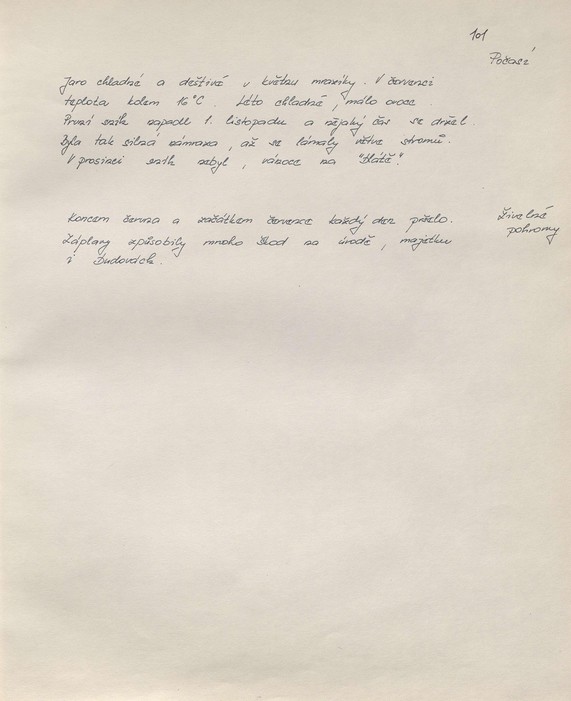 101
Počasí
Jaro chladné a deštivé v květnu mrazíky. V červenci
teplota kolem 16°C. Léto chladné, málo ovoce.
První sníh napadl 1. listopadu a nějaký čas se držel.
Byla tak silná námraza, až se lámaly větve stromů.
V prosinci sníh nebyl, vánoce na "blátě".
Koncem června a začátkem července každý den pršelo.
Živelné
pohromy
Záplavy způsobily mnoho škod na úrodě, majetku
i budovách.